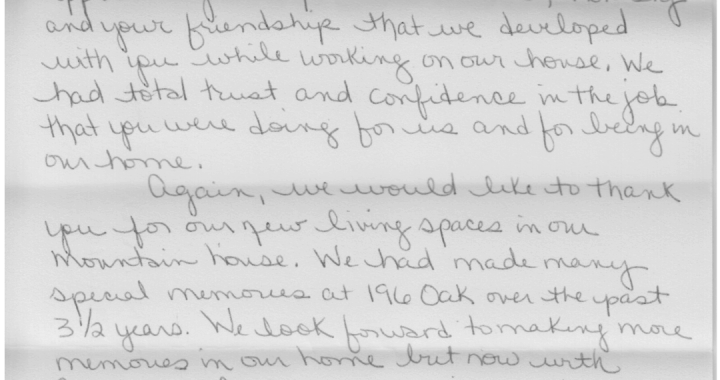 and your friendship that we developed
with you while working on our house. We
had total trust and confidence in the job
that you were doing for us and for being in
our home.
Again, we would like to thank
you for our new living spaces in our
Mountain house. We had made many
special memories at 196 Oak over the past
3 1/2 years. We look forward to making more
memories in our home but now with